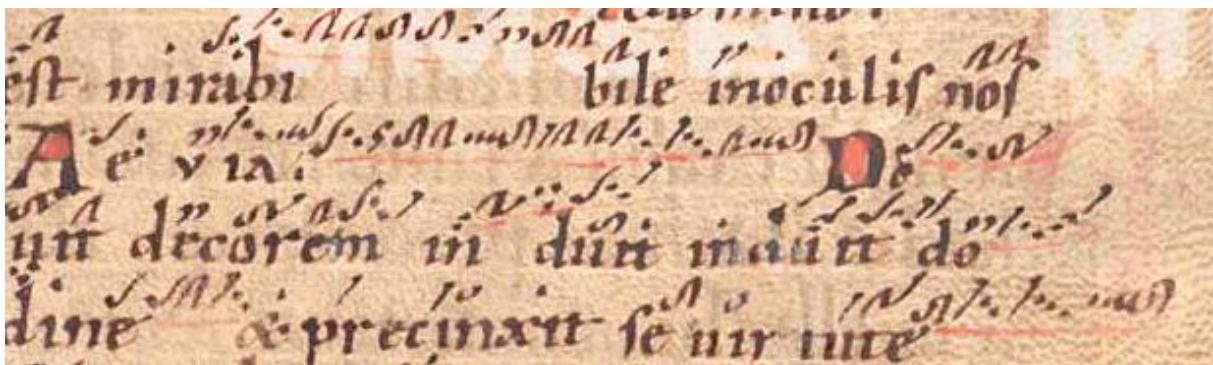 est mirabi bile inoculis nos
AevIA: D͞s
uit decorem in duit induit do
dine & precinxit se uir tute